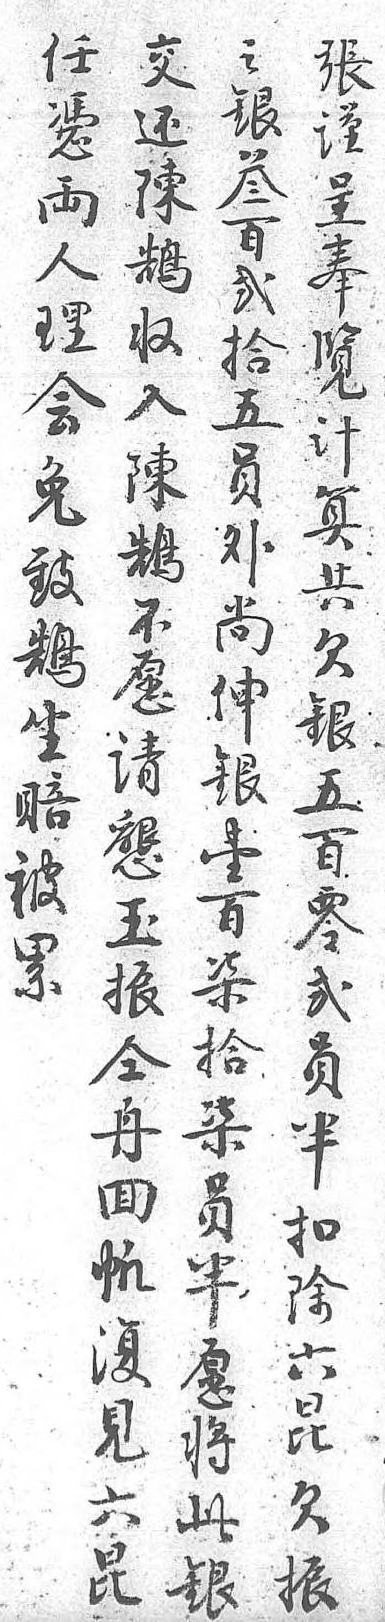 張謹呈奉覽計算共欠銀五百零弐員半扣除六昆欠振
之銀叁百弐拾五員外尚伸銀壹百柒拾柒員半愿將此銀
交还陳鵠收入陳鵠不愿請懇玉振仝舟囬帆復見六昆
任憑両人理会免致鵠坐賠被累